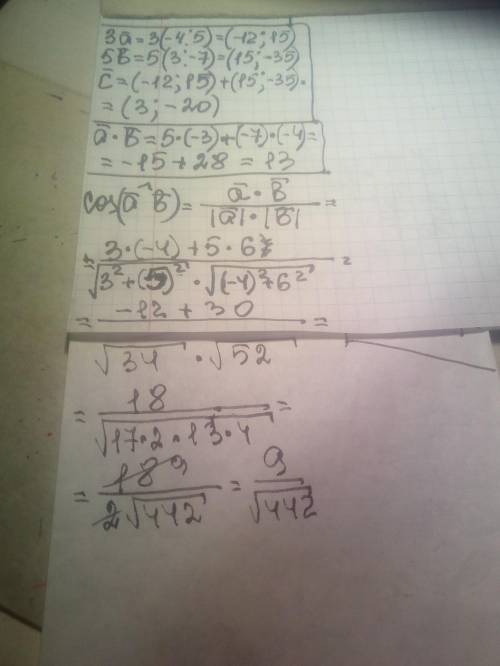 3a = 3(-4; 5) = (-12; 15)
5B = 5(3; -7) = (15; -35)
C̄ = (-12; 15) + (15; -35) =
= (3; -20)
ā · B̄ = 5·(-3) + (-7)·(-4) =
= -15 + 28 = 13
cos(ā ^ B̄) = ā · B̄ / |ā| · |B̄| =
= 3·(-4) + 5·6 / √3² + (5)² · √(-4)² + 6² =
= -12 + 30 / √34 · √52 =
= 18 / √17·2·13·4 =
= 18 9 / 2√442 = 9 / √442